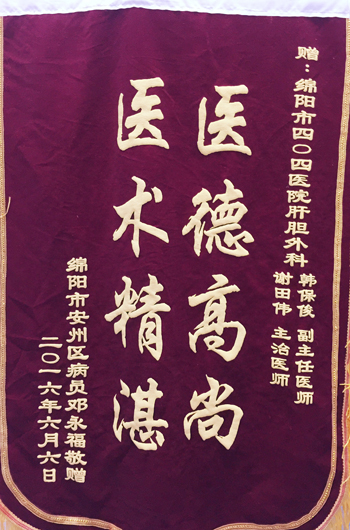 赠：绵阳市四〇四医院肝胆外科
韩保俊 副主任医师
谢田伟 主治医师
医德高尚
医术精湛
绵阳市安州区病员邓永福敬赠
二〇一六年六月六日